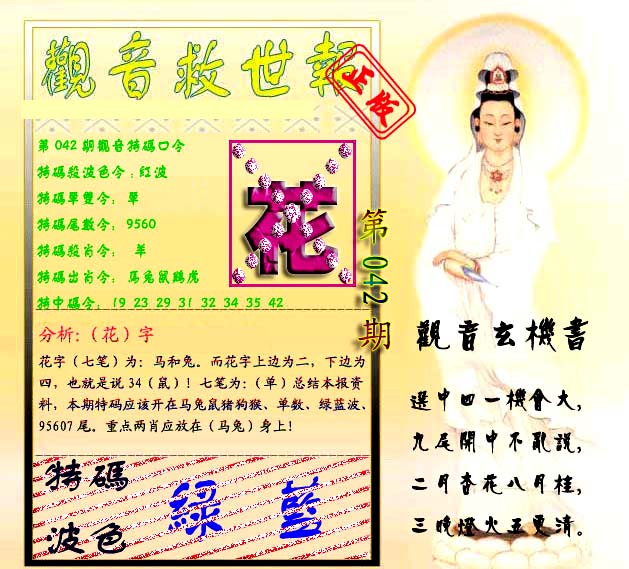 觀音救世報
正版
第 042 期觀音特碼口令
特碼殺波色令:紅波
特碼單雙令: 單
特碼尾數令: 9560
特碼殺肖令: 羊
特碼出肖令: 馬兔鼠鷄虎
特中碼令: 19 23 29 31 32 34 35 42
花
第 042 期
分析:（花）字
花字（七笔）为: 马和兔。而花字上边为二，下边为
四，也就是说 34（鼠）! 七笔为:（单）总结本报资
料，本期特码应该开在马兔鼠猪狗猴、单数、绿蓝波、
95607 尾。重点两肖应放在（马兔）身上!
特碼
波色
綠 藍
觀音玄機書
選中四一機會大,
九尾開中不亂說,
二月杏花八月桂,
三晚燈火五更清。